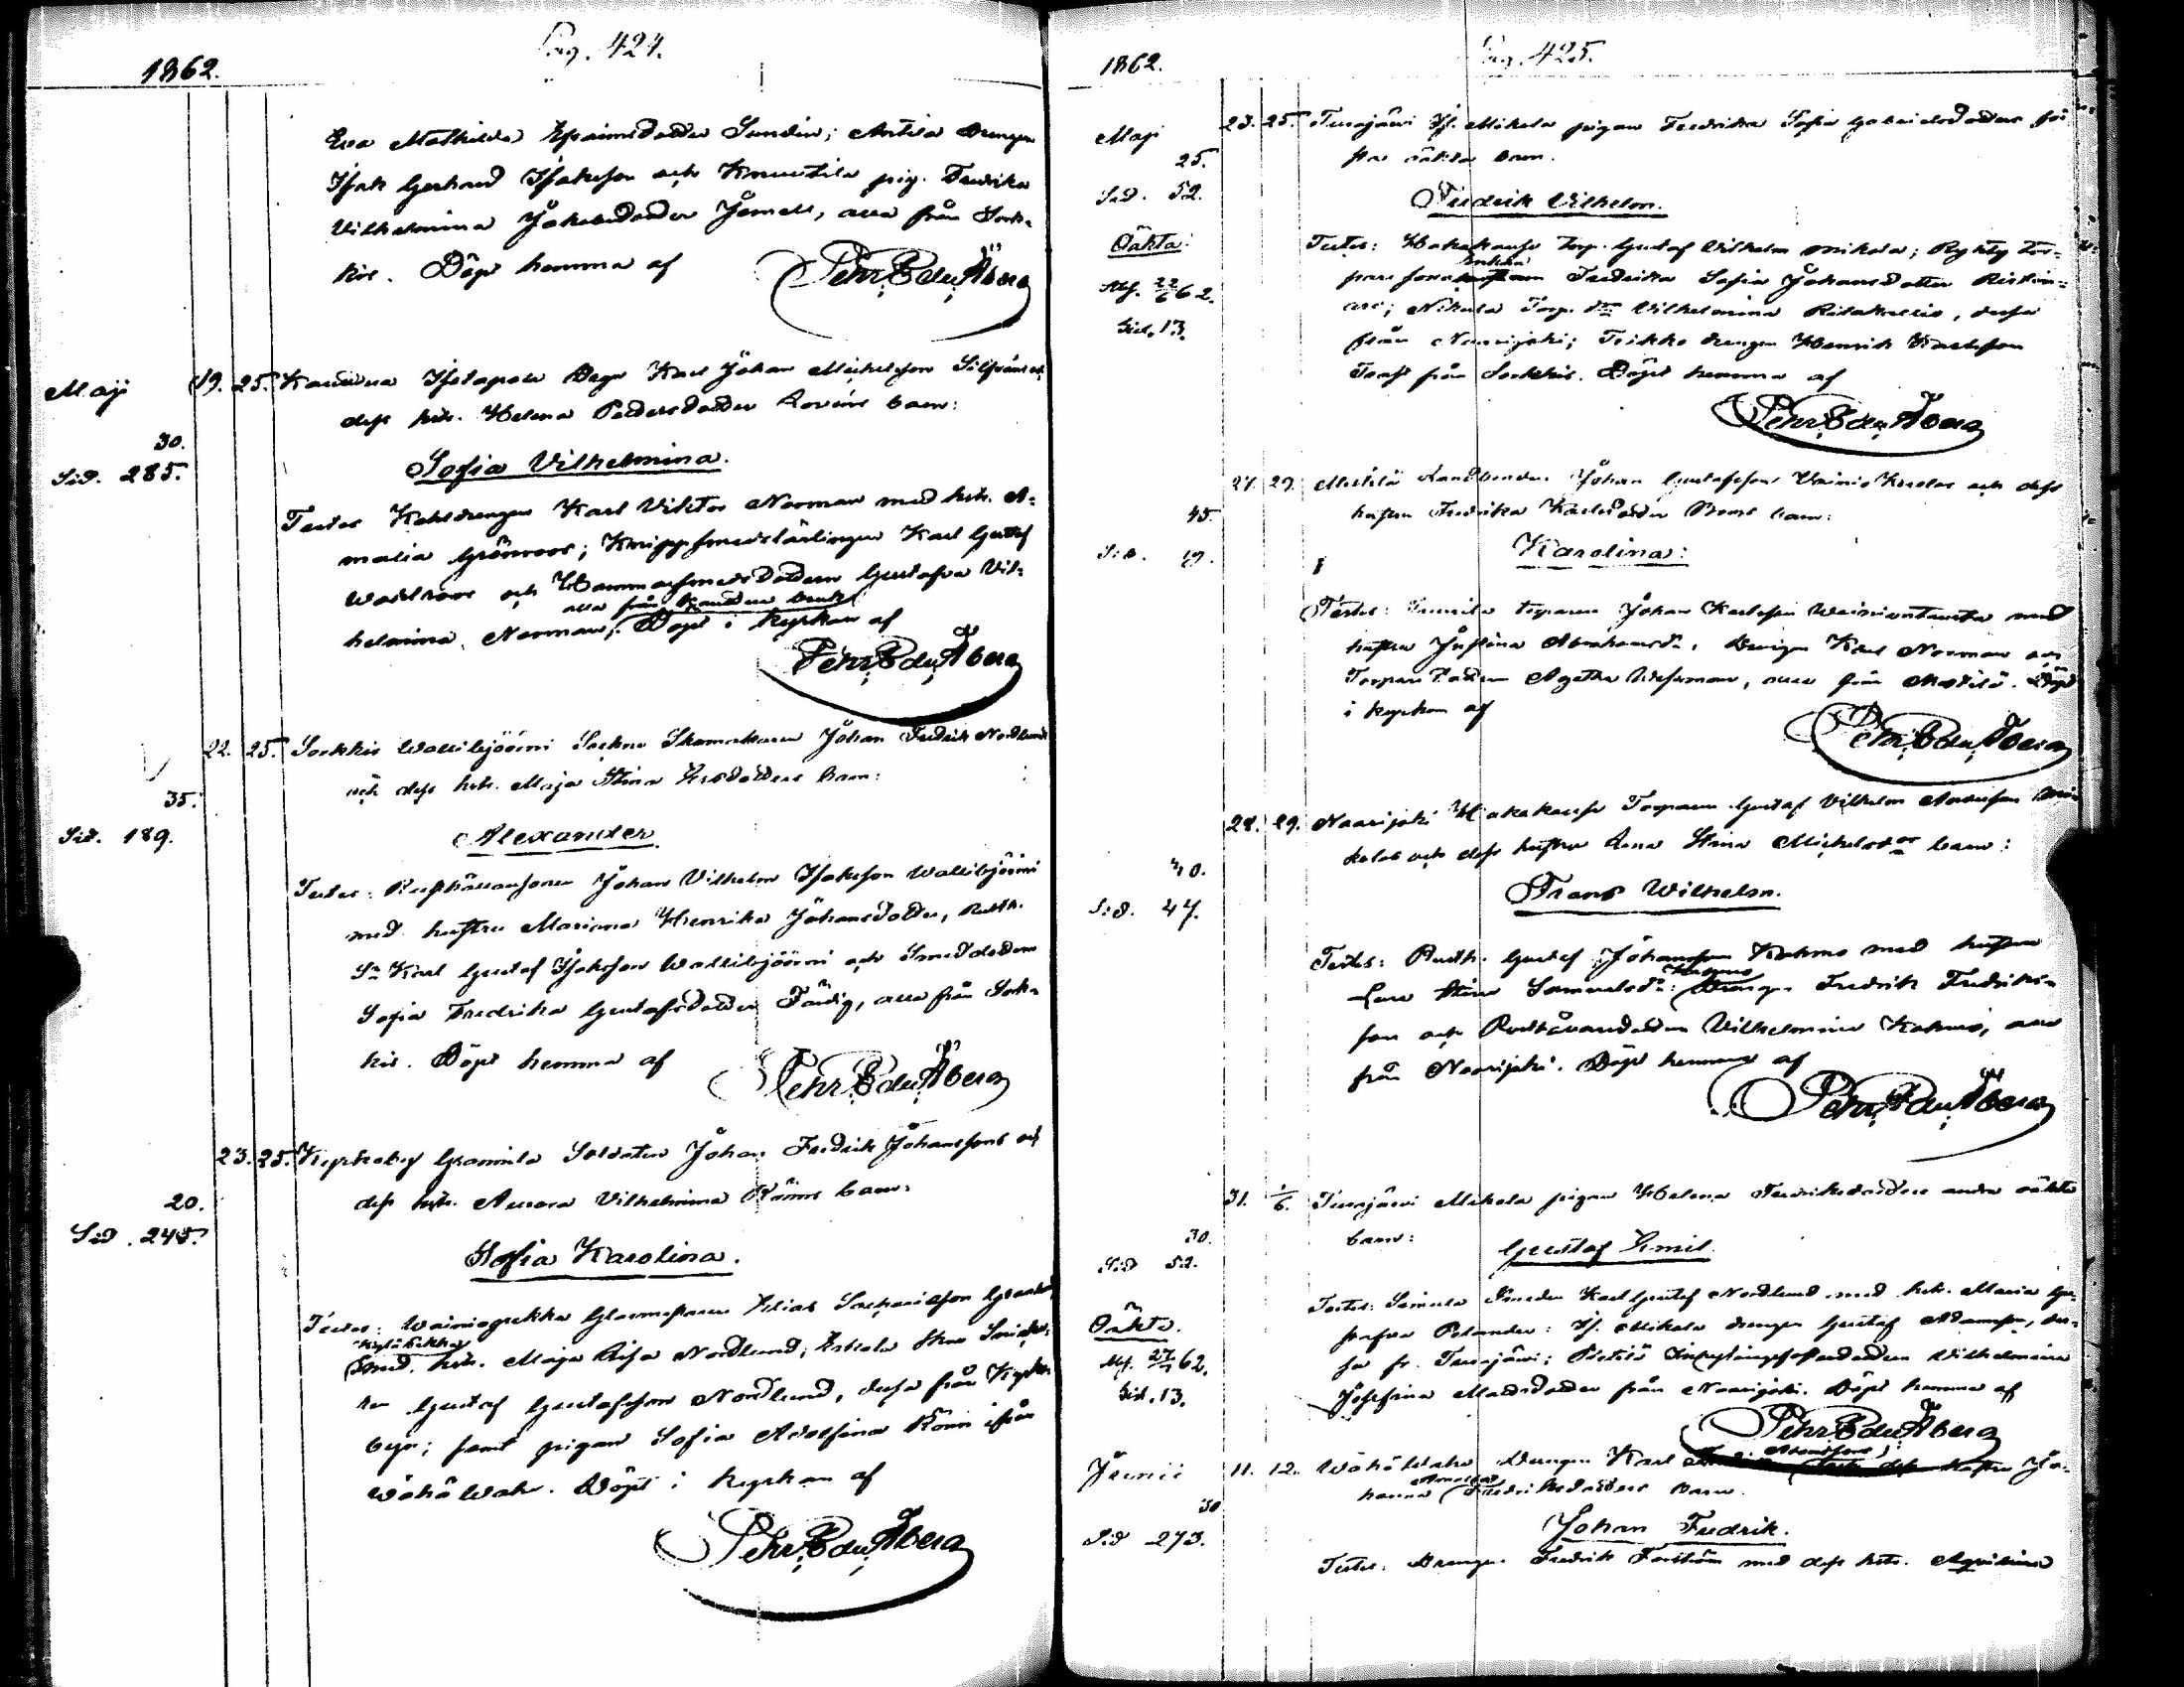 Pag. 424.
1862.
Eva Mathilda Efraimsdotter Sundin; Anttila Drengen
Isak Gerhard Isaksson och Knuutila pig. Fredrika
Vilhelmina Jakobsdotter Jernell, alla från Sork-
kis. Döpt hemma af Pehr Edu. Åberg
Maji 19. 25. Kauttua Isotapola Dreng Karl Johan Michelsson Silfvan och
dess hstr. Helena Pedersdotter Rovins barn:
30.
Sid. 285.
Sofia Vilhelmina.
Testes Karl Viktor Norrman med hstr. A-
malia Grönroos; Knippsmedslärlingen Karl Gustaf
Wahlroos och Hammarsmedsdottern Gustafva Vil-
alla från Kauttua bruk
helmina Norrman, Döpt i kyrkan af
Pehr Edu. Åberg
22. 25. Sorkkis Wallibjöörni Sockne Skomakaren Johan Fredrik Nordlund
och dess hstr. Maja Stina Ersdotters barn:
35.
Sid. 189.
Alexander.
Testes: Rusthållaresonen Johan Vilhelm Isaksson Wallibjörni
med hustru Mariana Henrika Johansdotter, Rusth.
Sn Karl Gustaf Isaksson Wallibjöörni och Smeddottern
Sofia Fredrika Gustafsdotter Färdig, alla från Sork-
kis. Döpt hemma af Pehr Edu. Åberg
23. 25. Kyrkoby Grannila Soldaten Johan Fredrik Johanssons och
dess hstr. Aurora Vilhelmina Ränns barn:
20.
Sid. 245.
Sofia Karolina.
Testes: Wainiopekka Glasmästaren Elias Sachariasson Granlund
Kylä Pekka
med hstr. Maja Lisa Nordlund; Eskola
Gustaf Gustafsson Nordlund, dessa från Kyrko-
byn; samt pigan Sofia Adolfina Rönn ifrån
Wähä Wahe. Döpt i kyrkan af
Pehr Edu. Åberg
Pag. 425.
1862.
Maji 23. 25. Turajärvi Yf. Mikola pigan Fredrika Sofia Gabrielsdotters för-
sta oäkta barn.
25.
Sid. 52.
Fredrik Vilhelm.
Oäkta:
Testes: Hakakauso torp. Gustaf Vilhelm Mikola; tor-
Enkan
pare Fredrika Sofia Johansdotter
Abs. 22/6 62.
Sid. 13.
Nikula Torp. dtr Vilhelmina, dessa
från Naarijoki; Frikko drengen Henrik Karlsson
Trast från Sorkkis. Döpt hemma af
Pehr Edu. Åberg
27. 29. Mestilä Landbonden Johan Gustafsson och dess
hustru Fredrika Karlsdotter barn:
45.
Sid. 19.
Karolina:
Testes: torparen Johan Karlsson med
hustru Justina Abrahamsdr. Drengen Karl Norrman och
Torparedottern Agatha Wessman, alla från Mestilä. Döpt
i kyrkan af
Pehr Edu. Åberg
28. 29. Naarijoki Hakakauso Torparen Gustaf Vilhelm Andersson Mi-
kolas och dess hustru Lena Stina Michelsdotters barn:
40.
Sid. 47.
Frans Wilhelm.
Testes: Rusth. Gustaf Johansson Kahmo med hustru
Lena Stina Samuelsdr: Drengen Fredrik Fredriks-
son och Rusthållaredottern Vilhelmina Kahmo, alla
från Naarijoki. Döpt hemma af
Pehr Edu. Åberg
31. 1/6. Turajärvi Mikola pigan Helena Fredriksdotters andra oäkta
30. barn:
Sid 52.
Gustaf Emil.
Testes: Seimula Smeden Karl Gustaf Nordlund med hstr. Maria Gu-
stafva Pelander: Yf. Mikola drengen Gustaf Adamsson, des-
Oäkta.
sa fr. Turajärvi; Pietilä Vilhelmina
Abs. 27/7 62.
Sid. 13.
Josefina Mattsdotter från Naarijoki. Döpt hemma af
Pehr Edu. Åberg
Junii 11. 12. Wähä Wahe Drengen Karl dess hustru Jo-
hanna Fredriksdotters barn.
30
Sid 273.
Johan Fredrik.
Testes: Drengen Fredrik Forström med dess hstr. Agvilina